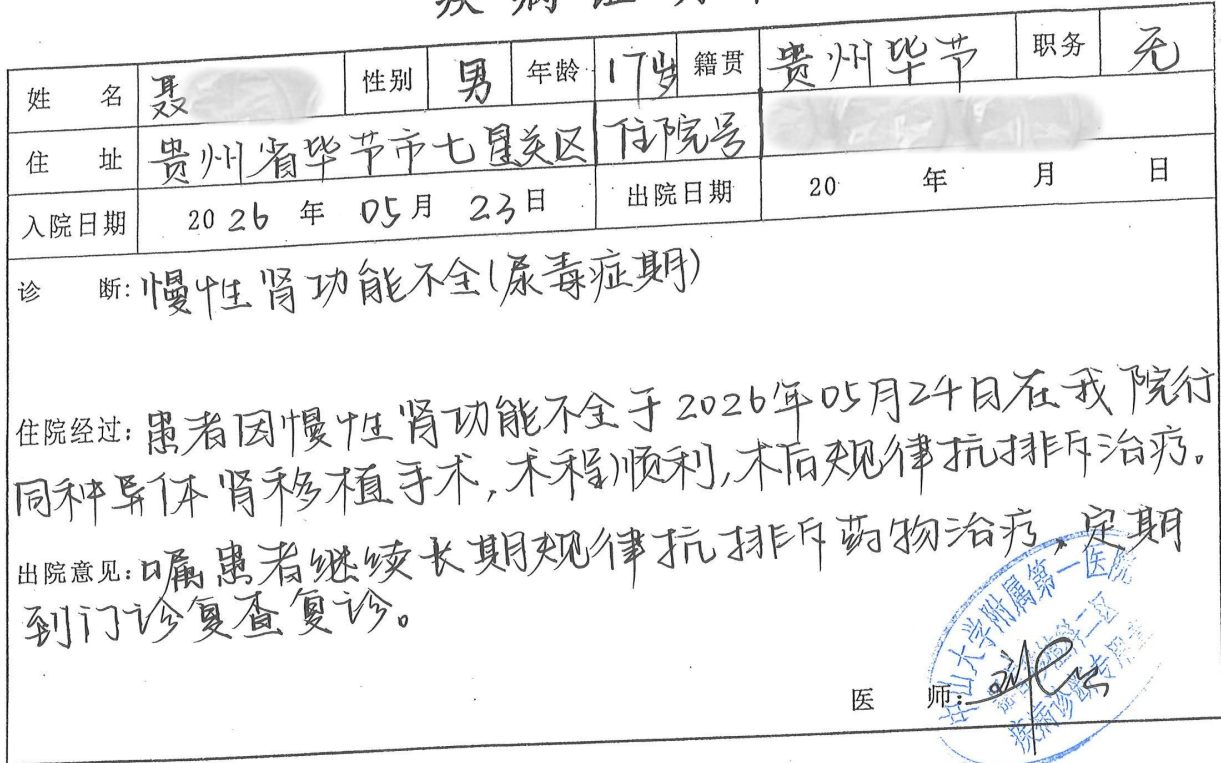 疾病证明书
姓 名 聂 性别 男 年龄 17岁 籍贯 贵州毕节 职务 无
住 址 贵州省毕节市七星关区 住院号
入院日期 2026年05月23日 出院日期 20 年 月 日
诊 断:慢性肾功能不全(尿毒症期)
住院经过:患者因慢性肾功能不全于2026年05月24日在我院行
同种异体肾移植手术,术程顺利,术后规律抗排斥治疗。
出院意见:嘱患者继续长期规律抗排斥药物治疗,定期
到门诊复查复诊。
中山大学附属第一医院
疾病诊断专用章
医 师: